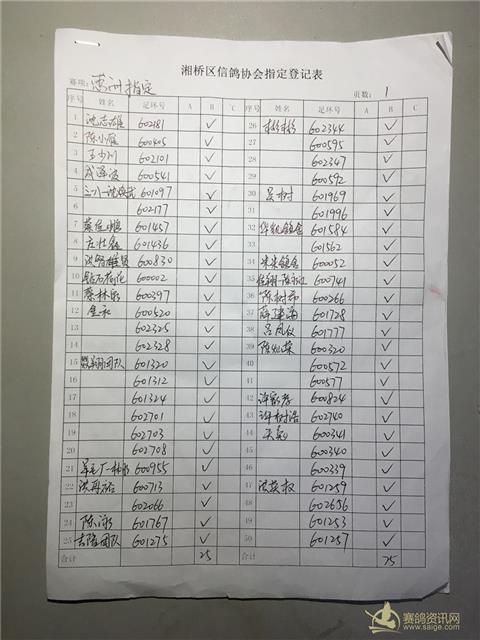 湘桥区信鸽协会指定登记表
赛项: 惠州指定 页数: 1
序号 姓名 足环号 A B C 序号 姓名 足环号 A B C
1 沈志雄 602181 ✓ 26 彬彬 602344 ✓
2 陈小雁 600405 ✓ 27 600595 ✓
3 王少川 602101 ✓ 28 602347 ✓
4 成泽波 600541 ✓ 29 600592 ✓
5 601097 ✓ 30 吴树 601969 ✓
6 602177 ✓ 31 601996 ✓
7 601457 ✓ 32 华凯鸽舍 601584 ✓
8 庄壮鑫 601436 ✓ 33 601562 ✓
9 600830 ✓ 34 鸽舍 600052 ✓
10 钻石荷花 600002 ✓ 35 600741 ✓
11 蔡林泉 600397 ✓ 36 陈树希 600266 ✓
12 600620 ✓ 37 薛建海 601728 ✓
13 602325 ✓ 38 吕凤仪 601777 ✓
14 602328 ✓ 39 陈灿荣 600320 ✓
15 团队 601320 ✓ 40 600572 ✓
16 601312 ✓ 41 600577 ✓
17 601324 ✓ 42 许家存 600824 ✓
18 602701 ✓ 43 许树浩 602740 ✓
19 602703 ✓ 44 600341 ✓
20 602708 ✓ 45 600340 ✓
21 600955 ✓ 46 600339 ✓
22 洪再裕 600713 ✓ 47 沈燕权 601259 ✓
23 602066 ✓ 48 602696 ✓
24 陈泳 601767 ✓ 49 601253 ✓
25 吉隆团队 601275 ✓ 50 601257 ✓
合计 25 合计 25
赛鸽资讯网
www.saige.com